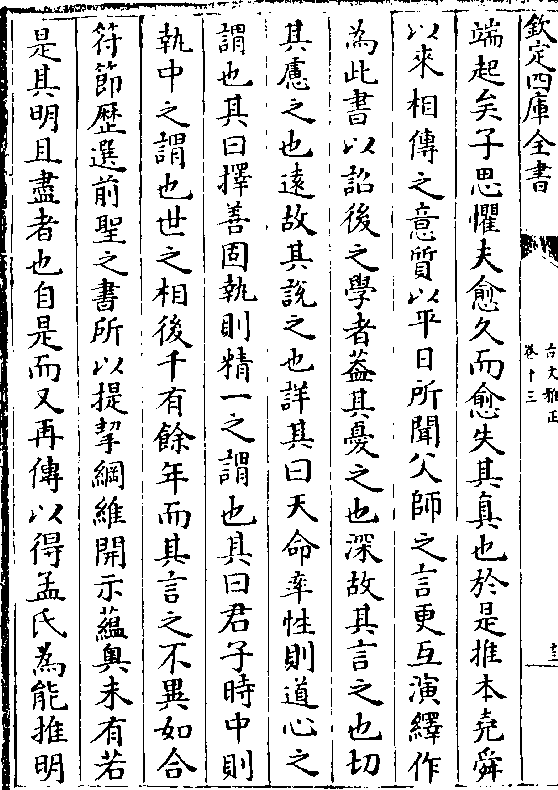 欽定四庫全書
古文雅正
卷十三
端起矣子思懼夫愈久而愈失其真也於是推本堯舜
以來相傳之意質以平日所聞父師之言更互演繹作
為此書以詔後之學者葢其憂之也深故其言之也切
其慮之也遠故其說之也詳其曰天命率性則道心之
謂也其曰擇善固執則精一之謂也其曰君子時中則
執中之謂也世之相後千有餘年而其言之不異如合
符節歴選前聖之書所以提挈綱維開示藴奥未有若
是其明且盡者也自是而又再傳以得孟氏為能推明